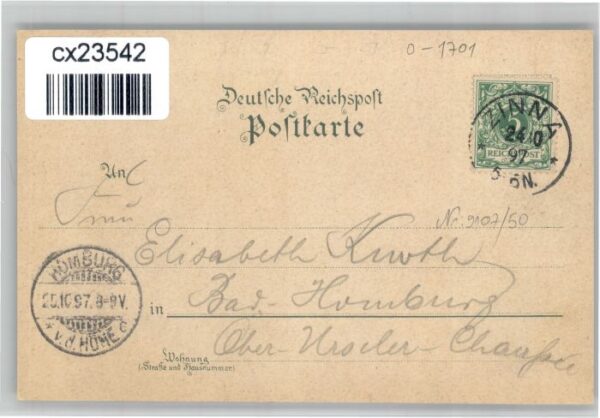 cx23542
0-1701
Deutsche Reichspost
Postkarte
5
REICHSPOST
ZINNA
24 0
97
5-6N.
An
Frau
Nr. 9107/50
Elisabeth Knoth
in Bad-Homburg
Ober-Urseler-Chaussee
Wohnung
(Straße und Hausnummer)
HOMBURG
25.10.97. 8-9V.
* v.d. HÖHE c